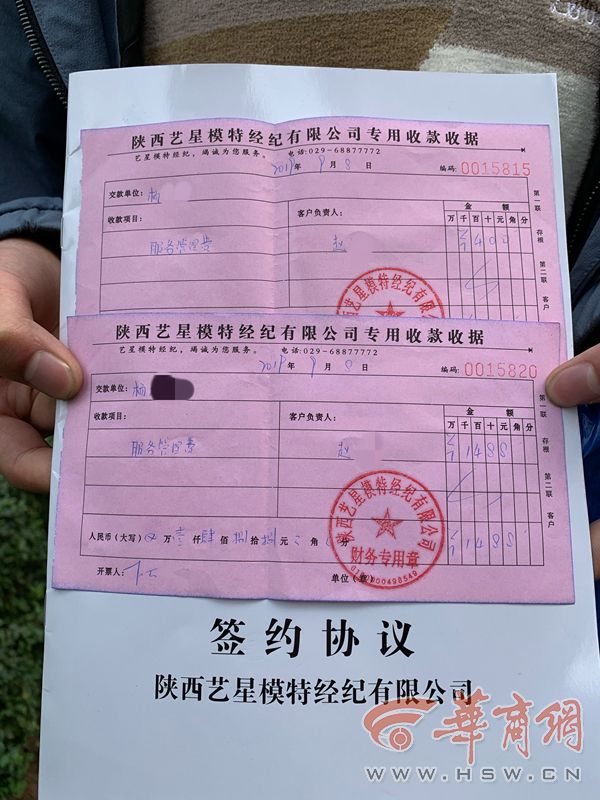 陕西艺星模特经纪有限公司专用收款收据
艺星模特经纪,竭诚为您服。 电话:029-68877772
2019年9月8日
编码:0015815
交款单位:杨
收款项目:
客户负责人:
金额
万千百十元角分
服务管理费
赵
第一联 存根 第二联 客户
陕西艺星模特经纪有限公司
陕西艺星模特经纪有限公司专用收款收据
艺星模特经纪,竭诚为您服务。 电话:029-68877772
2019年9月8日
编码:0015820
交款单位:杨
收款项目:
客户负责人:
金额
万千百十元角分
服务管理费
赵
1488
第一联 存根 第二联 客户
人民币(大写) 万壹仟肆佰捌拾捌元 角 分
1488
开票人:
单位(章)
陕西艺星模特经纪有限公司
财务专用章
签约协议
陕西艺星模特经纪有限公司
華商網
WWW.HSW.CN